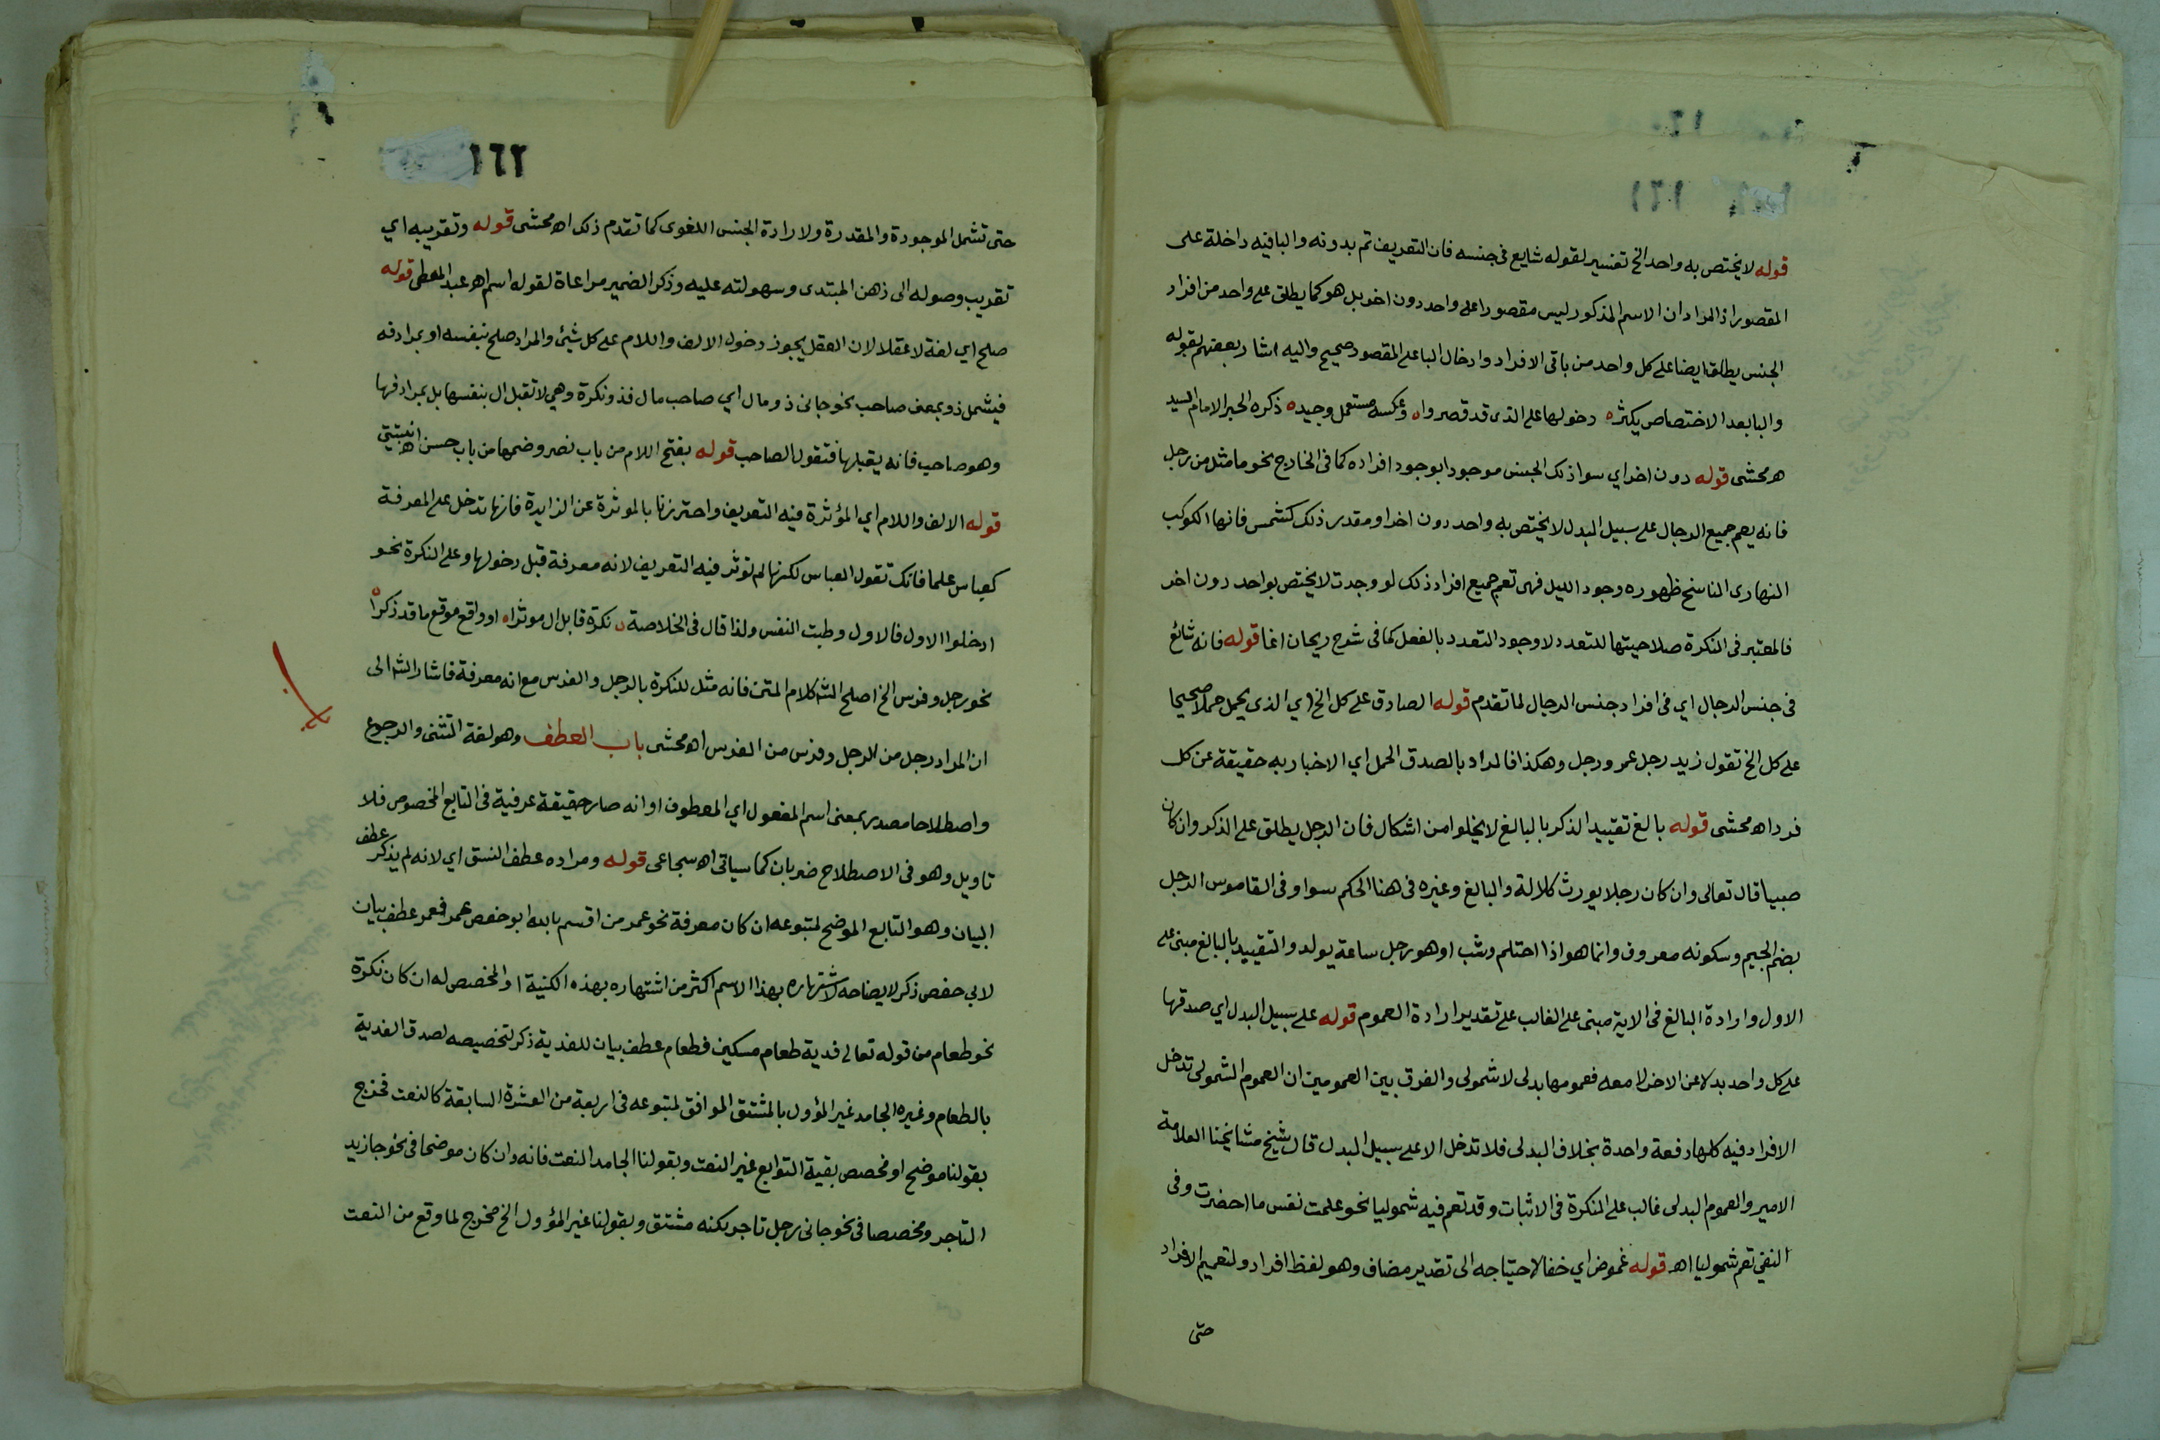 ١٦١
قوله لا يختص به واحد الخ تفسير لقوله شايع في جنسه فان التعريف تم بدونه والبا فيه داخلة على
المقصور اذ المراد ان الاسم المذكور ليس مقصورا على واحد دون اخر بل هو كما يطلق على واحد من افراد
الجنس يطلق ايضا على كل واحد من باقى الافراد وادخال البا على المقصور صحيح واليه اشار بعضهم بقوله
والبا بعد الاختصاص يكثره دخولها على الذى قد قصروا ه وعكسه مستعمل وجيد ه ذكره الحبر الامام السيد
اه محشى قوله دون اخر اي سوا ذلك الجنس موجودا بوجود افراده كما فى الخارج نحو ما مثل من رجل
فانه يعم جميع الرجال على سبيل البدل لا يختص به واحد دون اخر او مقدر ذلك كشمس فانها الكوكب
النهارى الناسخ ظهوره وجود الليل فهى تعم جميع افراد ذلك لو وجدت لا يختص بواحد دون اخر
فالمعتبر فى النكرة صلاحيتها للتعدد لا وجود التعدد بالفعل كما فى شرح ريحان اغا قوله فانه شائع
فى جنس الرجال اي فى افراد جنس الرجال لما تقدم قوله الصادق على كل الخ اي الذى يحمل حملا صحيحا
على كل الخ تقول زيد رجل عمرو رجل وهكذا فالمراد بالصدق الحمل اي الاخبار به حقيقة عن كل
فرد اه محشى قوله بالغ تقييد الذكر بالبالغ لا يخلوا من اشكال فان الرجل يطلق على الذكر وان كان
صبيا قال تعالى وان كان رجل يورث كلالة والبالغ وغيره فى هنا الحكم سوا وفى القاموس الرجل
بضم الجيم وسكونه معروف وانما هو اذا احتلم وشب او هو رجل ساعة يولد والتقييد بالبالغ مبنى على
الاول وارادة البالغ فى الاية مبنى على الغالب على تقدير ارادة العموم قوله على سبيل البدل اي صدقها
على كل واحد بدلا عن الاخر لا معه فعمومها بدلى لا شمولى والفرق بين العمومين ان العموم الشمولى تدخل
الافراد فيه كلها دفعة واحدة بخلاف البدلى فلا تدخل الا على سبيل البدل قال شيخ مشايخنا العلامة
الامير والعموم البدلى غالب على النكرة فى الاثبات وقد تعم فيه شموليا نحو علمت نفس ما احضرت وفى
النفي تعم شموليا اه قوله غموض اي خفا لاحتياجه الى تقدير مضاف وهو لفظ افراد ولتعميم الافراد
حتى
١٦٢
حتى تشمل الموجودة والمقدرة ولارادة الجنس اللغوى كما تقدم ذلك اه محشى قوله وتقريبه اي
تقريب وصوله الى ذهن المبتدى وسهولته عليه وذكر الضمير مراعاة لقوله اسم اه عبد المعطى قوله
صلح اي لغة لا عقلا لان العقل يجوز دخول الالف واللام على كل شيئ والمراد صلح بنفسه او بمرادفه
فيشمل ذو بمعنى صاحب نحو جانى ذو مال اي صاحب مال فذو نكرة وهي لا تقبل ال بنفسها بل بمرادفها
وهو صاحب فانه يقبلها فتقول الصاحب قوله بفتح اللام من باب نصر وضمها من باب حسن اه نبتيتى
قوله الالف واللام اي المؤثرة فيه التعريف واحترزنا بالموثرة عن الزايدة فانها تدخل على المعرفة
كعباس علما فانك تقول العباس لكنها لم توثر فيه التعريف لانه معرفة قبل دخولها وعلى النكرة نحو
ادخلوا الاول فالاول وطبت النفس ولذا قال فى الخلاصة ه نكرة قابل ال موثرا ه او واقع موقع ما قد ذكرا ه
نحو رجل وفرس الخ اصلح الش كلام المتن فانه مثل للنكرة بالرجل والفرس مع انه معرفة فاشار الش الى
ان المراد رجل من الرجل وفرس من الفرس اه محشى باب العطف وهو لغة التثنى والرجوع
واصطلاحا مصدر بمعنى اسم المفعول اي المعطوف او انه صار حقيقة عرفية فى التابع المخصوص فلا
تاويل وهو فى الاصطلاح ضربان كما سياتى اه سجاعى قوله ومراده عطف النسق اي لانه لم يذكر عطف
البيان وهو التابع الموضح لمتبوعه ان كان معرفة نحو عمر من اقسم بالله ابو حفص عمر فعمر عطف بيان
لابي حفص ذكر لايضاحه لاشتهاره بهذا الاسم اكثر من اشتهاره بهذه الكنية او المخصص له ان كان نكرة
نحو طعام من قوله تعالى فدية طعام مسكين فطعام عطف بيان للفدية ذكر لتخصيصه لصدق الفدية
بالطعام وغيره الجامد غير المؤول بالمشتق الموافق لمتبوعه فى اربعة من العشرة السابقة كالنعت فخرج
بقولنا موضح او مخصص بقية التوابع غير النعت وبقولنا الجامد النعت فانه وان كان موضحا فى نحو جا زيد
التاجر ومخصصا فى نحو جانى رجل تاجر لكنه مشتق وبقولنا غير المؤول الخ مخرج لما وقع من النعت